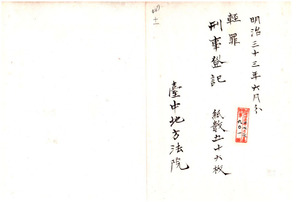 明治三十三年六月分
輕罪
刑事登記
紙數五十六枚
臺中地方法院